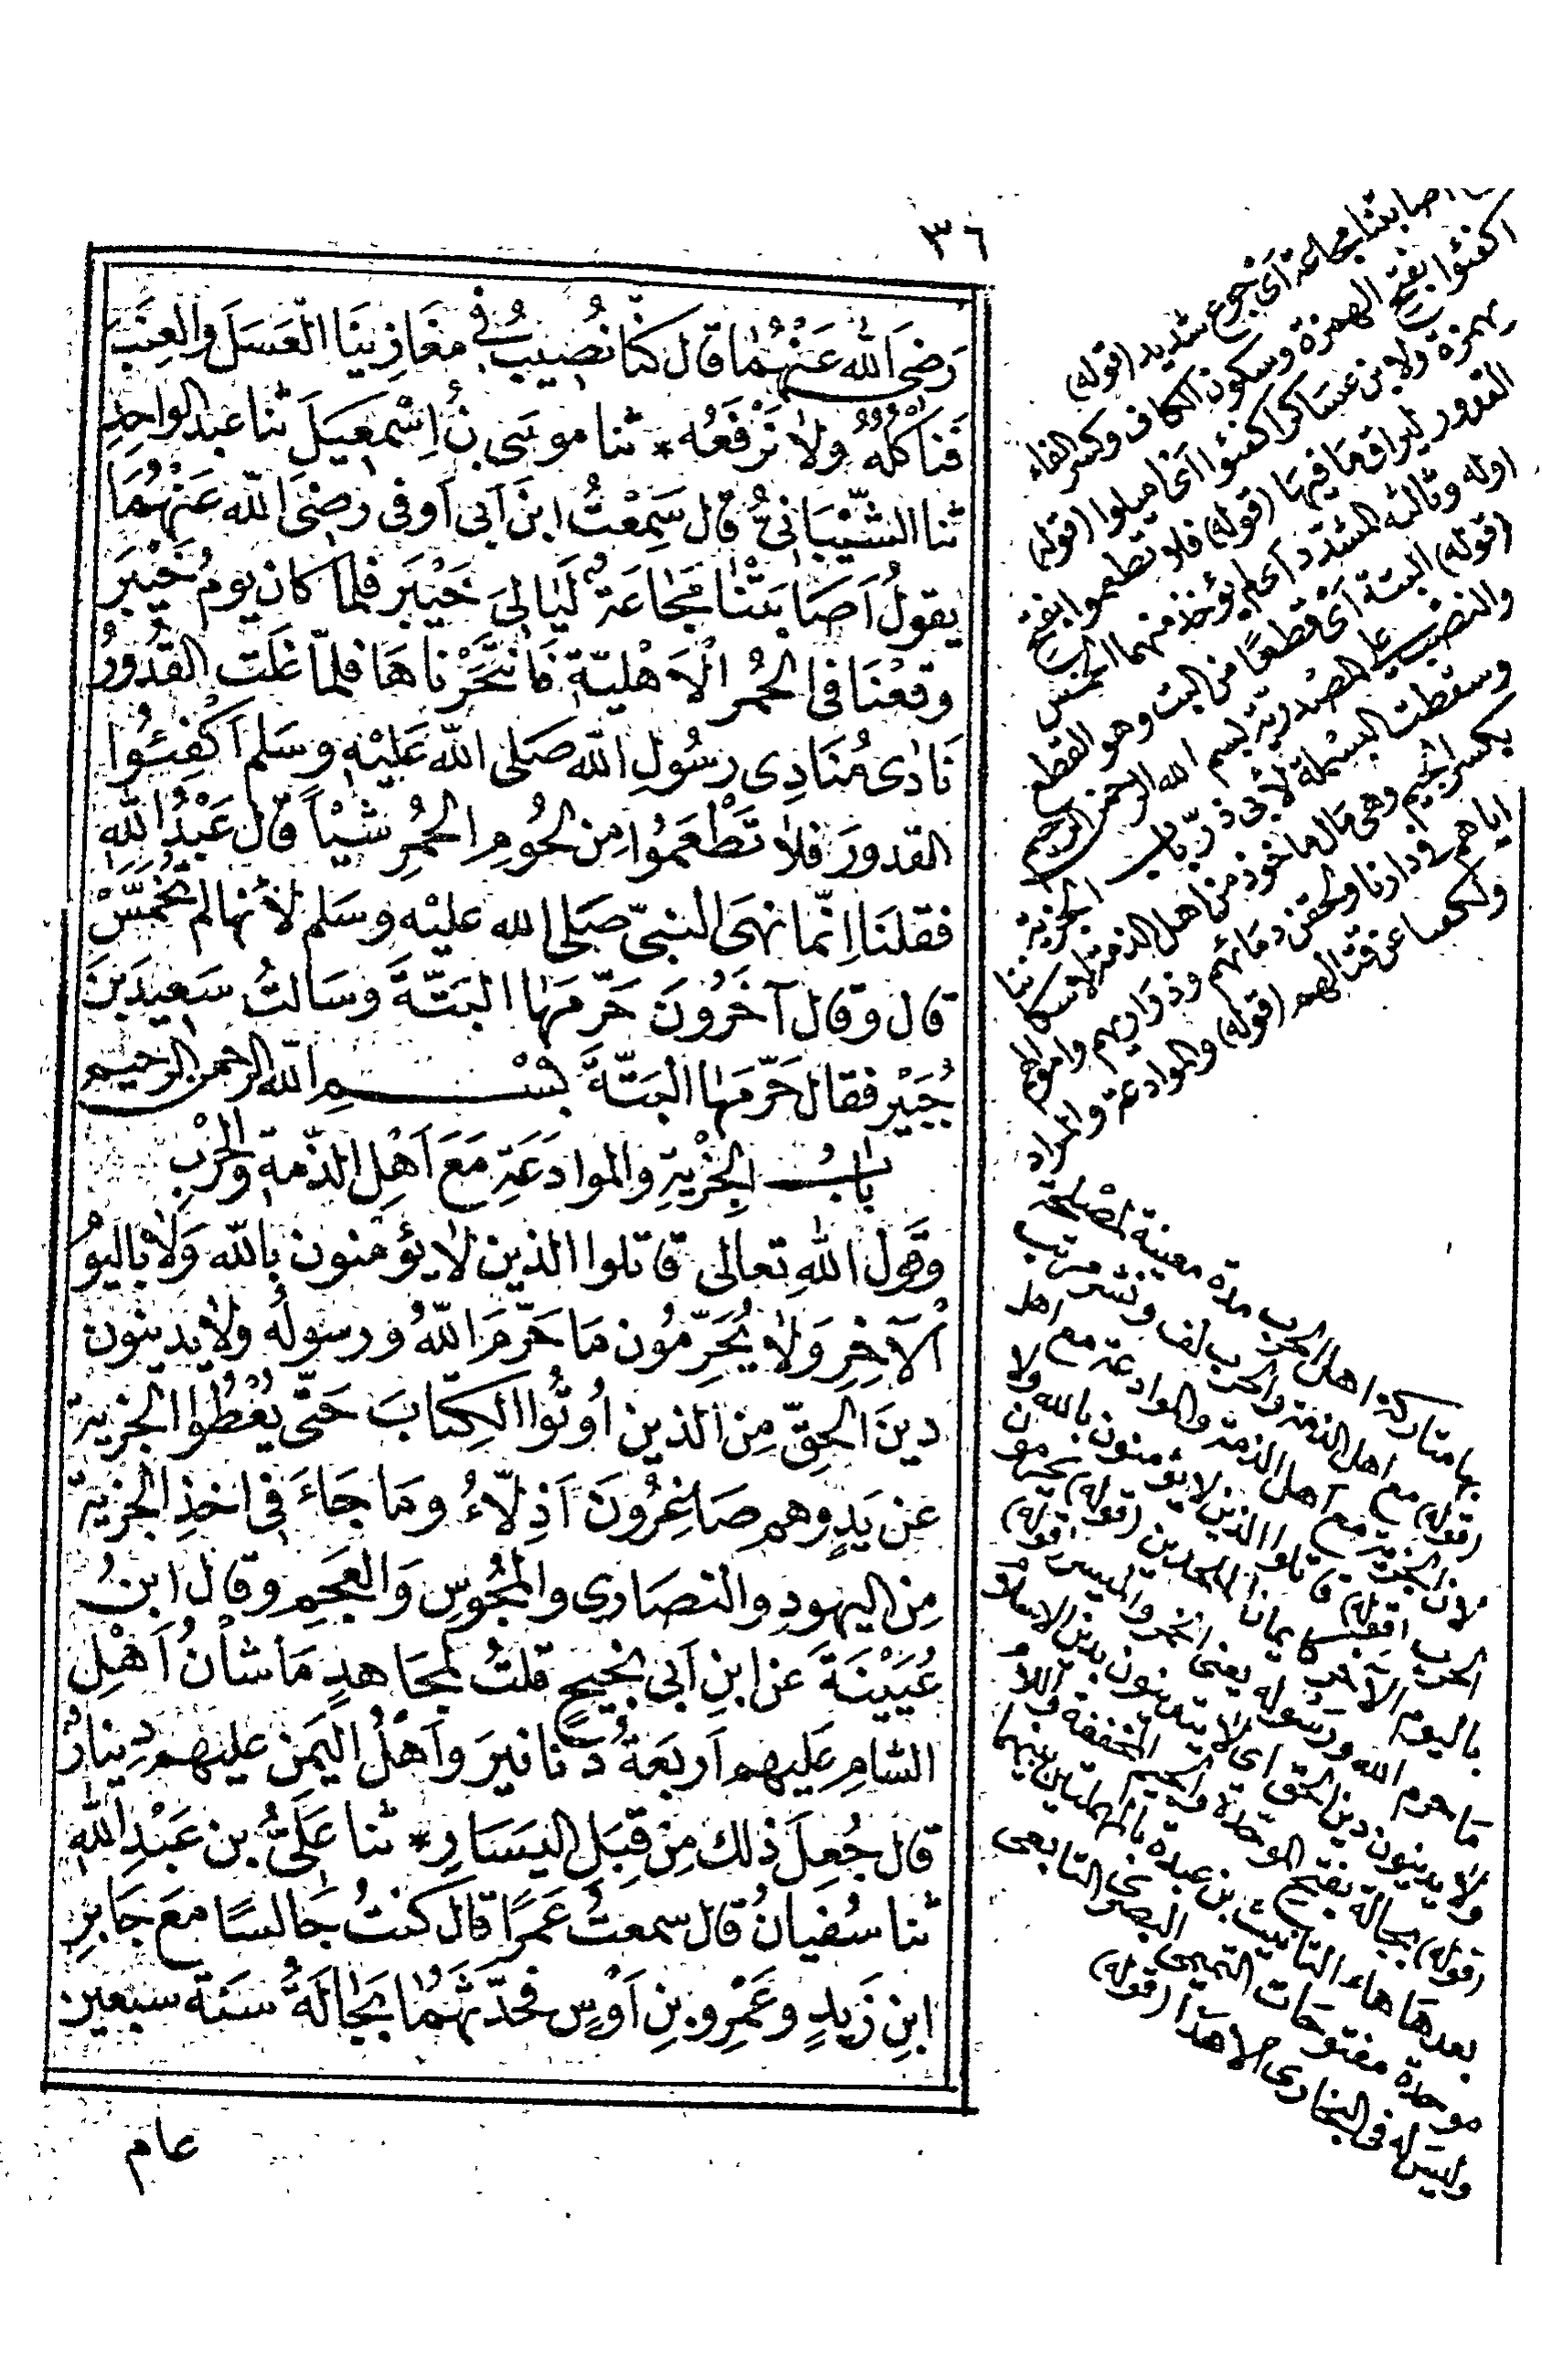 ٣٦
رَضِىَ اللّٰه عَنْهُمَا قال كنّا نُصِيبُ فى مغَازِينَا الْعَسَلَ والعِنَبَ
فَنَاكُلُهُ ولا نَرْفَعُه * ثنا موسَى بنُ اِسْمعيلَ ثنا عبد الواحِدِ
ثنا الشّيْبَانىُّ قال سَمِعْتُ ابنَ اَبى اَوفى رضىَ اللّٰه عَنْهُمَا
يقولُ اَصَابَتْنَا مَجَاعَةٌ لَيَالِىَ خَيْبَرَ فلمّا كان يومُ خَيْبَرَ
وقَعْنَا فى الحُمرِ الْاَهْليّةِ فَانْتَحَرْنَاهَا فلمّا غَلَت القُدُورُ
نَادَى مُنَادِى رسُولِ اللّٰه صَلى اللّٰه عَلَيْهِ وسَلم اَكْفِئُوا
القدورَ فلا تَطْعَمُوا مِن لحُومِ الحُمُرِ شَيْاً قال عَبْدُ اللّٰهِ
فقلنَا اِنّما نهَى النبىّ صَلى الله عليْه وسَلم لأنها لم تُخَمَّسْ
قال وقال آخَرُونَ حَرّمَهَا البَتّةَ وسَالتُ سَعِيدَ بنَ
جُبَيْرٍ فقال حَرّمَهَا البَتّةَ بسْمِ اللّٰه الرحمن الرحيم
بابُ الجِزْيةِ والموادَعَةِ مَعَ اَهْلِ الذّمةِ والحَرْبِ
وقَولِ اللّٰهِ تعالى قاتلوا الذين لا يؤمنون بالله وَلا باليومِ
الآخِرِ وَلا يُحَرِّمُون مَا حَرّمَ اللّٰهُ ورسولُه ولا يدينون
دينَ الحقِّ مِن الذين اُوتُوا الكِتابَ حَتّى يُعْطُوا الجزيةَ
عن يَدٍ وهم صَاغِرُونَ اَذِلّاءُ ومَا جَاءَ فى اخذِ الجزيةِ
مِن اليهودِ والنصَارى والمجُوسِ وَالعَجَمِ وقال ابنُ
عُيَيْنَةَ عن ابنِ اَبى نجيحٍ قلتُ لمجَاهدٍ مَا شَأنُ اَهْلِ
الشامِ عَليهم اَربَعَةُ دَنانيرَ وَاَهْلُ اليَمَنِ عليهم دِينارٌ
قال جُعِلَ ذلك مِن قِبَلِ اليَسَارِ * ثنا عَلىُّ بن عَبْدِ اللّٰهِ
ثنا سُفيانُ قال سمعتُ عَمرًا قال كنتُ جَالسًا معَ جَابِرِ
ابنِ زَيدٍ وعَمْرِو بنِ اَوْسٍ فحَدّثَهُمَا بَجَالَةُ سَنَةَ سَبْعِين
عام
اصابتنا مجاعة اى جوع شديد (قوله)
اكفئوا بفتح الهمزة وسكون الكاف وكسر الفاء
بهمزة ولابن عساكر اكفئوا اى اميلوا (قوله)
القدور ليراق ما فيها (قوله) فلا تطعموا بفتح
اوله وثالثه المشدد اى لم يؤخذ منها الخمس
(قوله) البتة اى قطعًا من البت وهو القطع
والنصب على المصدرية بسم الله الرحمن الرحيم
وسقطت البسملة لأبى ذر باب الجزية
بكسر الجيم وهى مال ماخوذ من اهل الذمة لاسكاننا
اياهم فى دارنا ولحقن دمائهم وذراريهم واموالهم
ولكفنا عن قتالهم (قوله) والموادعة والمراد
بها متاركة اهل الحرب مدة معينة لمصلحة
(قوله) مع اهل الذمة والحرب لف ونشر مرتب
لان الجزية مع اهل الذمة والموادعة مع اهل
الحرب (قوله) قاتلوا الذين لا يؤمنون بالله ولا
باليوم الآخر كايمان الموحدين (قوله) يحرمون
ما حرم الله ورسوله يعنى الخمر والميسر (قوله)
ولا يدينون دين الحق اى لا يتدينون بدين الاسلام
(قوله) بجالة بفتح الموحدة والجيم المخففة واللام
بعدها هاء التانيث بن عبدة بالمهملتين بينهما
موحدة مفتوحات التميمى البصرى التابعى
وليس له فى البخارى الا هذا (قوله)